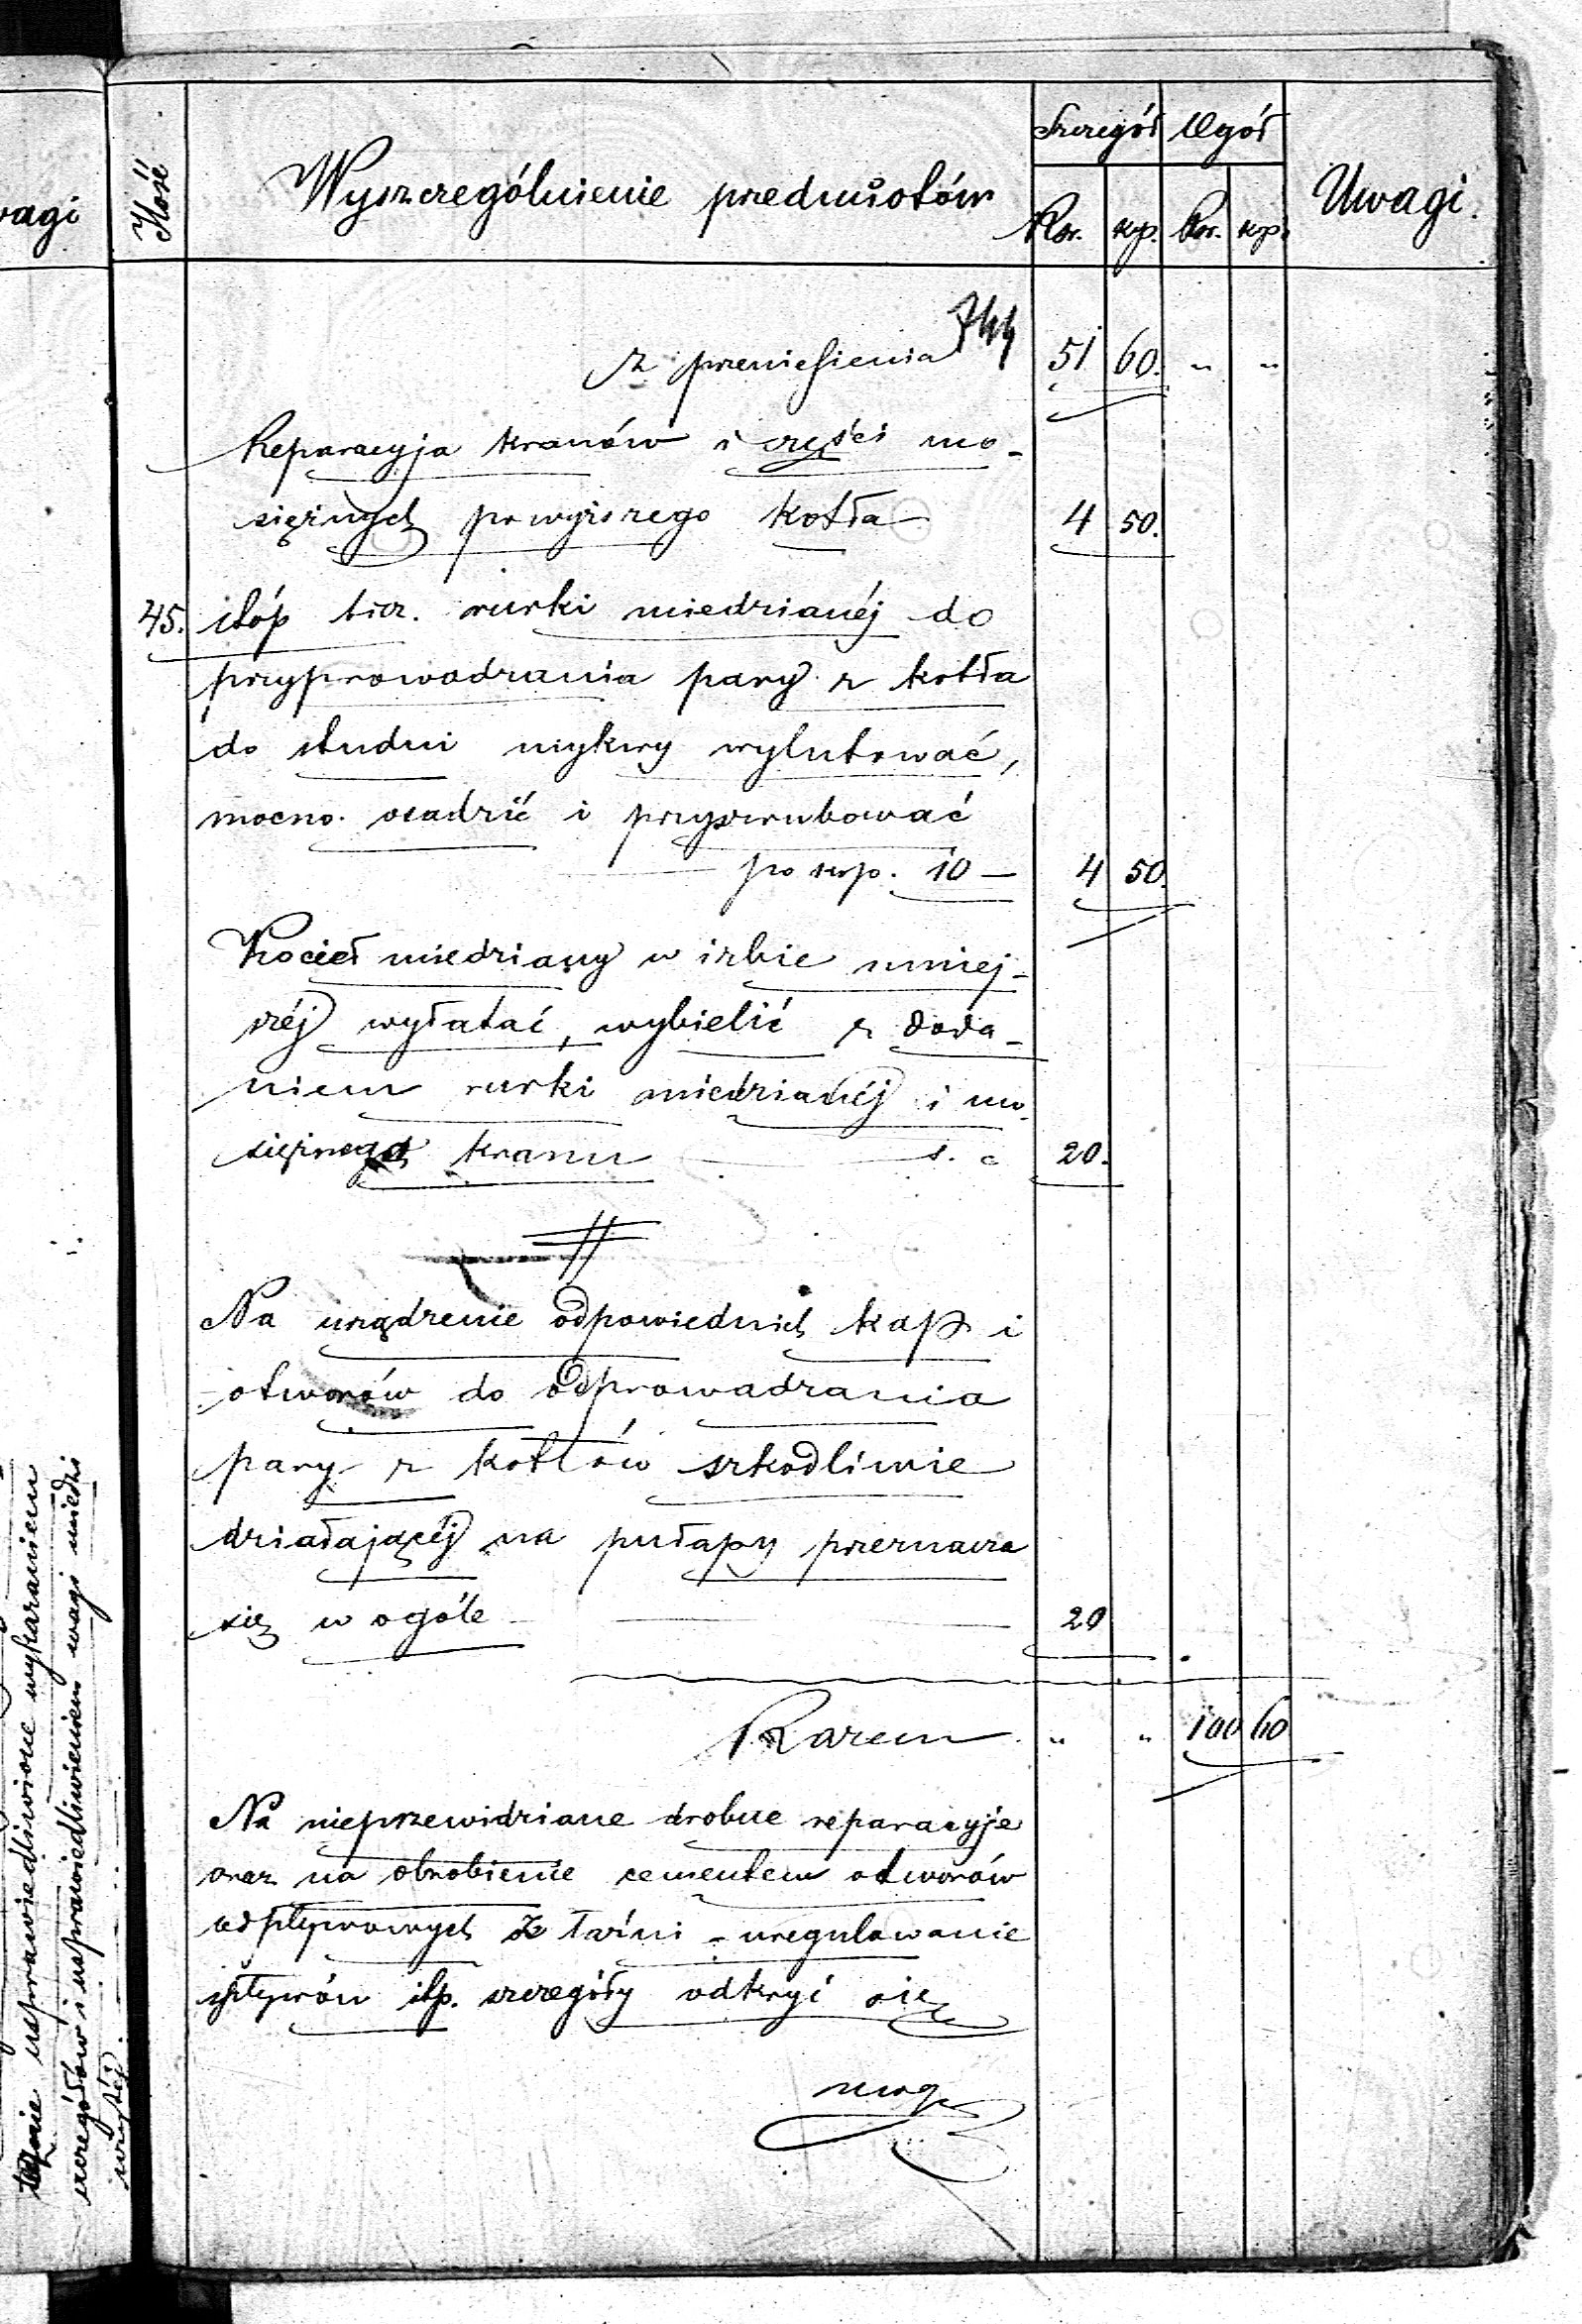 Ilość
Wyszczególnienie przedmiotów
Szczegół Ogół
Rsr. kop. Rsr. kop.
Uwagi.
wagi
z przeniesienia 51 60. " "
Reparacyja kranów i części mo-
siężnych powyższego kotła 4 50.
45. stóp bież. rurki miedzianéj do
przyprowadzania pary z kotła
do studni mykwy wylutować,
mocno osadzić i przyszrubować
po kop. 10 — 4 50.
Kocieł miedziany w izbie mniej-
széj wyłatać, wybielić z doda-
niem rurki miedzianéj i mo-
siężnego kranu 20.
Na urządzenie odpowiednich kap i
otworów do odprowadzania
pary z kotłów szkodliwie
działającéj na pułapy przeznacza
się w ogóle 20
Razem " " 100 60
Na nieprzewidziane drobne reparacyje
oraz na obrobienie cementem otworów
odpływowych z łaźni - uregulowanie
spływów itp. szczegóły odkryć się
mogą
usprawiedliwione wykazaniem
szczegółów i usprawiedliwieniem wagi miedzi